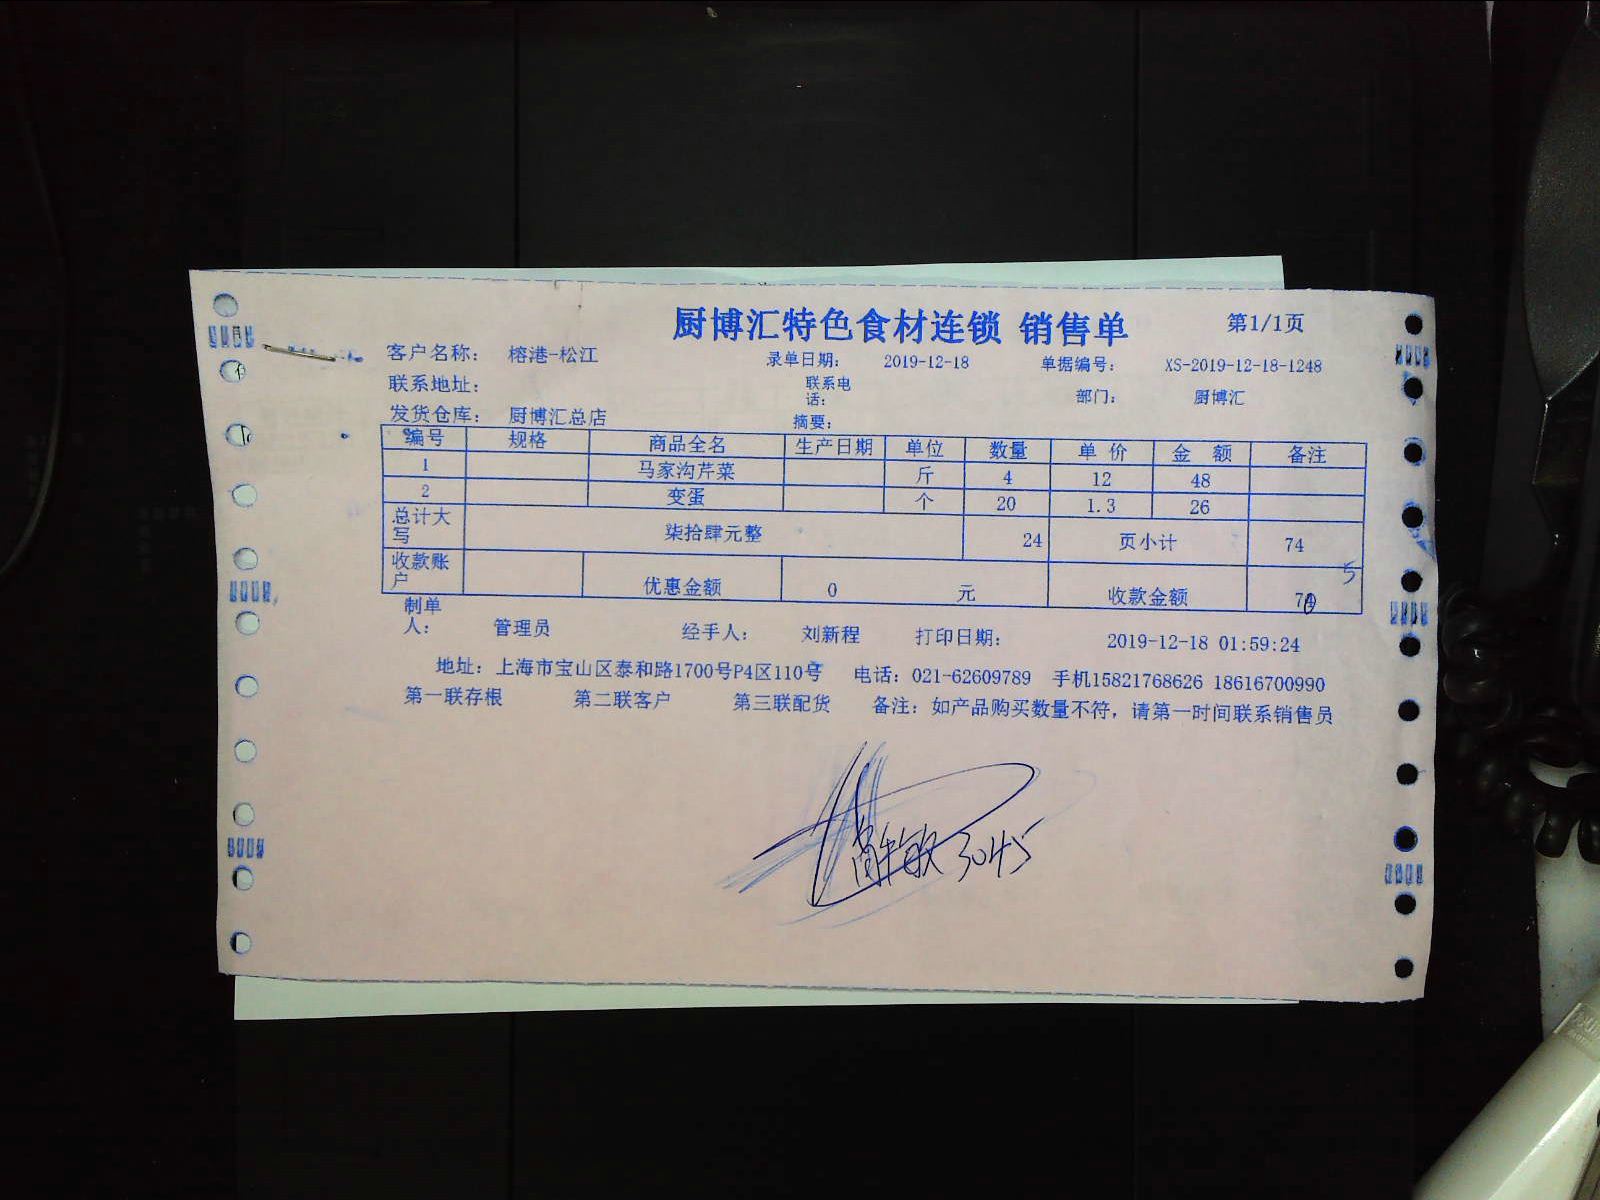 厨博汇特色食材连锁 销售单 第1/1页
客户名称： 榕港-松江 录单日期： 2019-12-18 单据编号： XS-2019-12-18-1248
联系地址： 联系电话： 部门： 厨博汇
发货仓库： 厨博汇总店 摘要：
编号 规格 商品全名 生产日期 单位 数量 单 价 金 额 备注
1 马家沟芹菜 斤 4 12 48
2 变蛋 个 20 1.3 26
总计大写 柒拾肆元整 24 页小计 74
收款账户 优惠金额 0 元 收款金额 74
5
制单人： 管理员 经手人： 刘新程 打印日期： 2019-12-18 01:59:24
地址：上海市宝山区泰和路1700号P4区110号 电话：021-62609789 手机15821768626 18616700990
第一联存根 第二联客户 第三联配货 备注：如产品购买数量不符，请第一时间联系销售员
3045